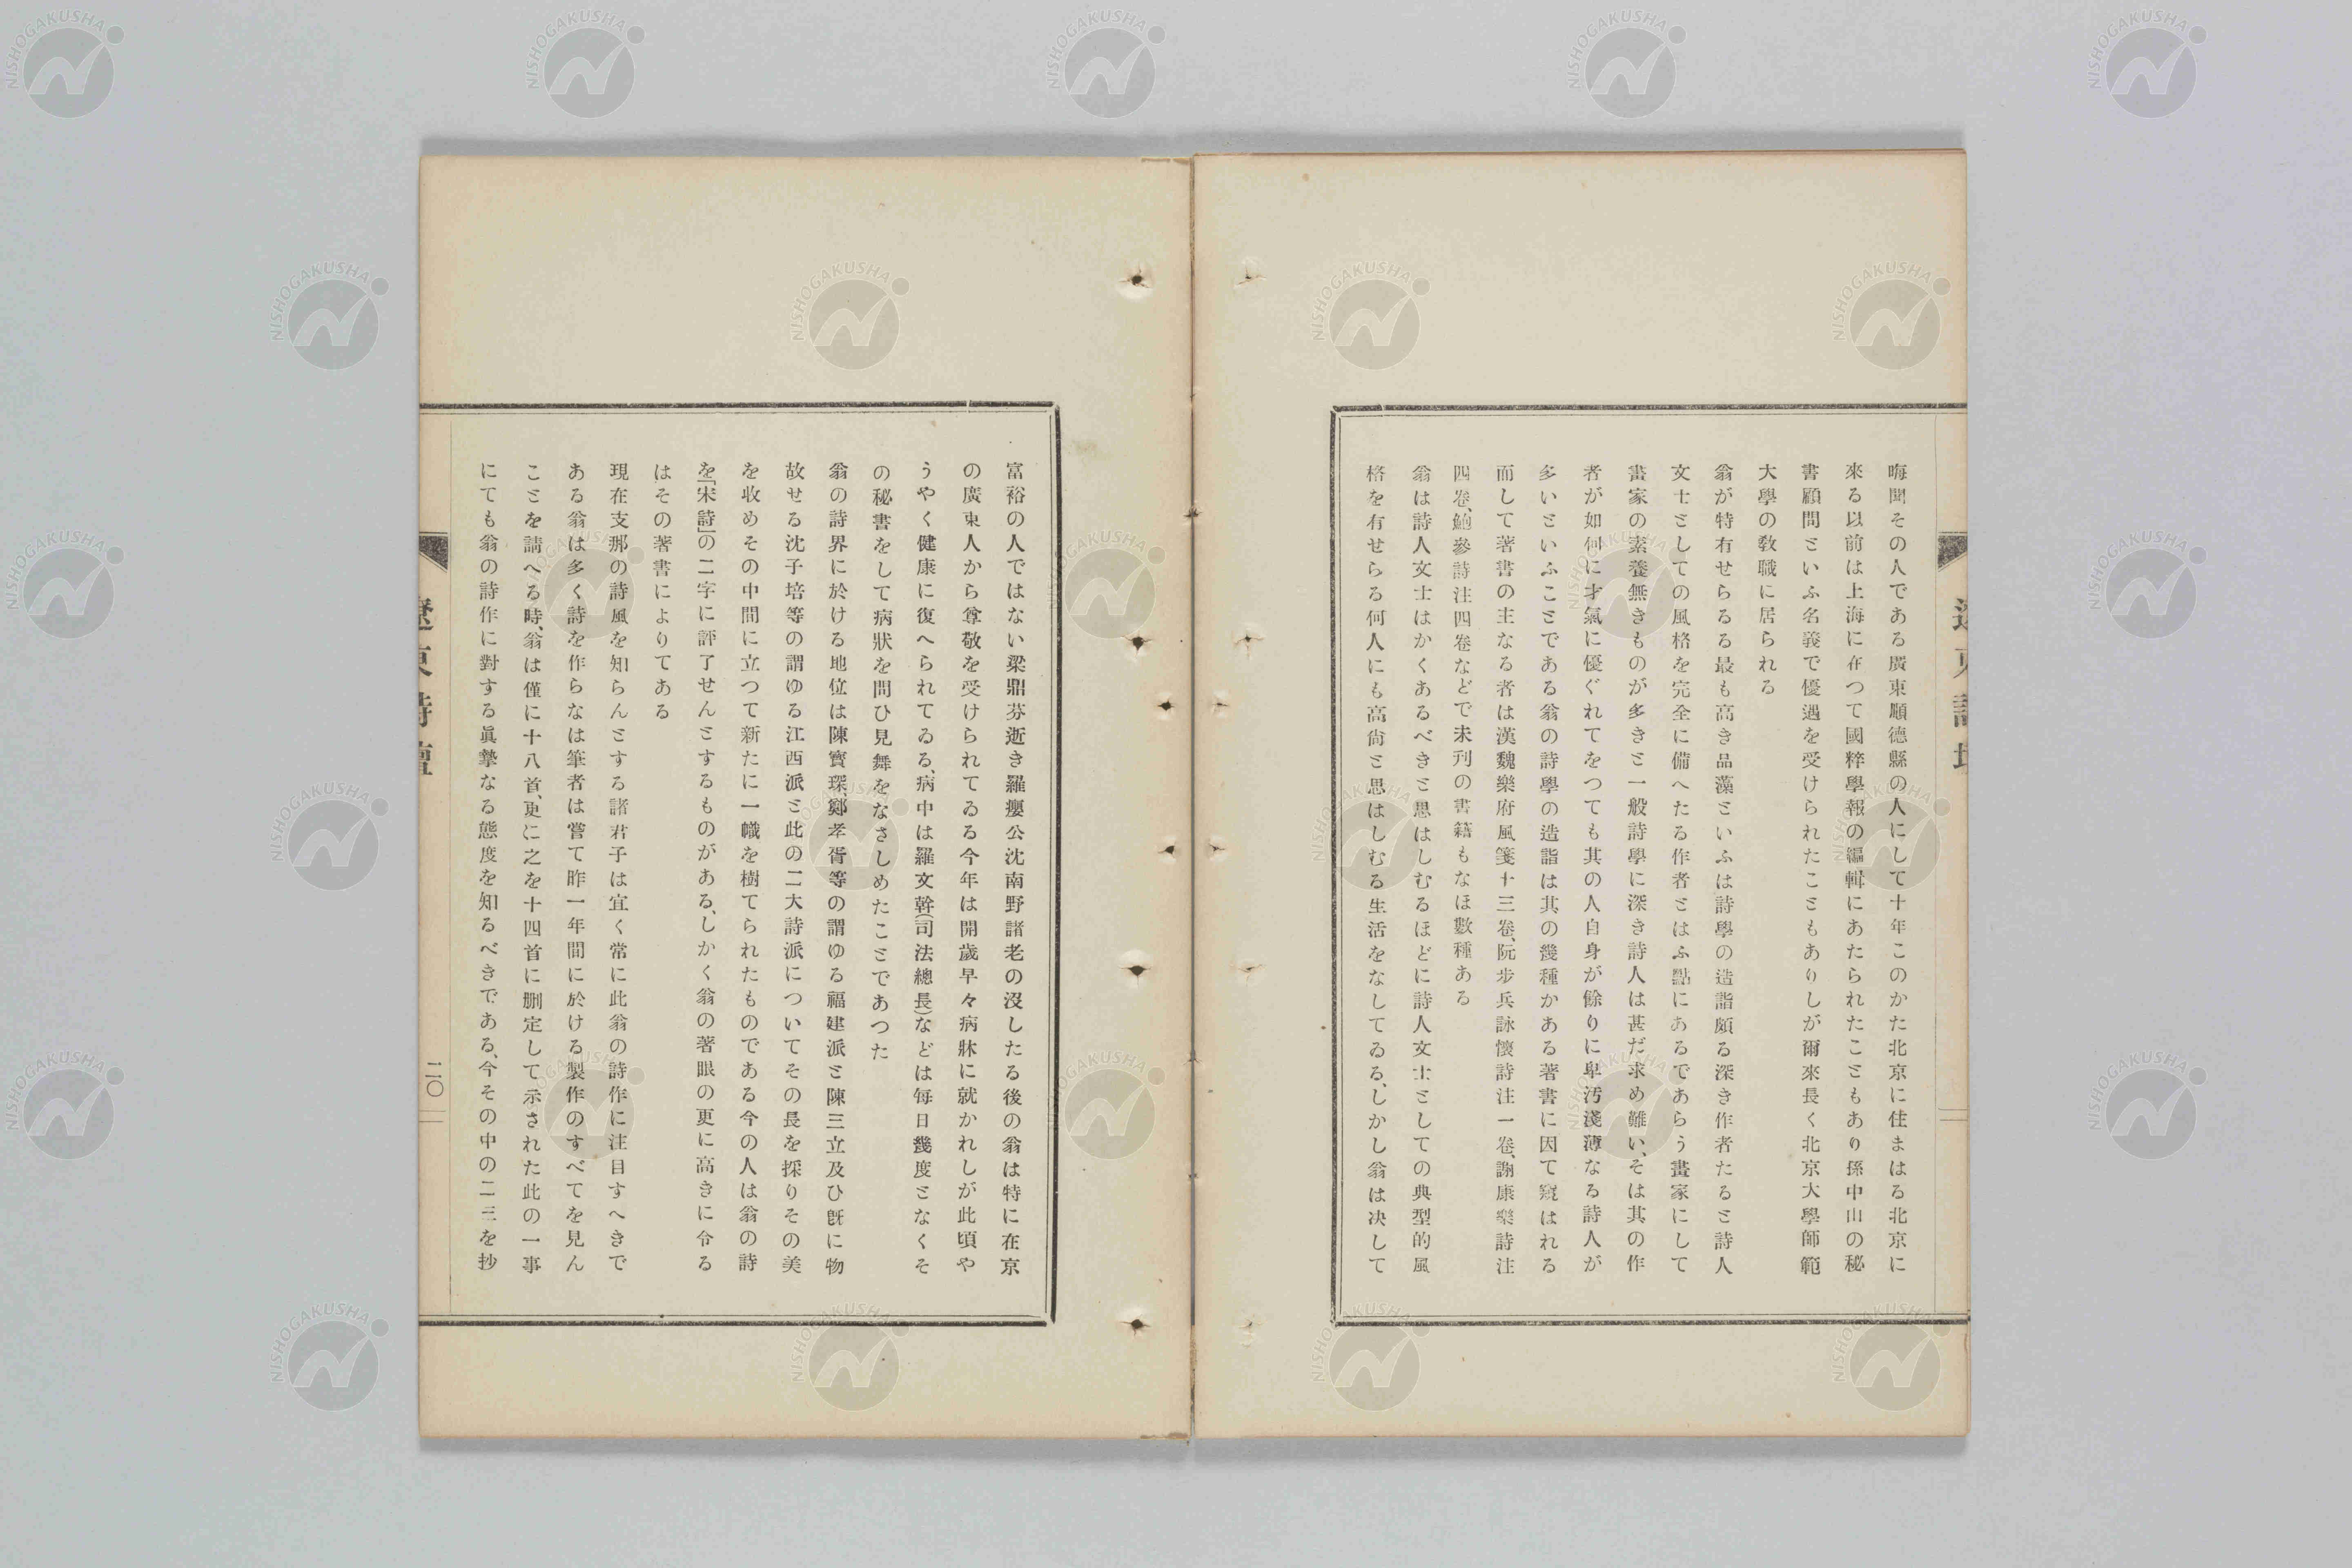 晦聞その人である廣東順德縣の人にして十年このかた北京に住まはる北京に
來る以前は上海に在つて國粹學報の編輯にあたられたこともあり孫中山の秘
書顧問といふ名義で優遇を受けられたこともありしが爾來長く北京大學師範
大學の敎職に居られる
翁が特有せらるる最も高き品藻といふは詩學の造詣頗る深き作者たると詩人
文士としての風格を完全に備へたる作者とはふ點にあるであらう畫家にして
畫家の素養無きものが多きと一般詩學に深き詩人は甚だ求め難い、そは其の作
者が如何に才氣に優ぐれてをつても其の人自身が餘りに卑汚淺薄なる詩人が
多いといふことである翁の詩學の造詣は其の幾種かある著書に因て窺はれる
而して著書の主なる者は漢魏樂府風箋十三卷、阮步兵詠懷詩注一卷、謝康樂詩注
四卷、鮑參詩注四卷などで未刊の書籍もなほ數種ある
翁は詩人文士はかくあるべきと思はしむるほどに詩人文士としての典型的風
格を有せらる何人にも高尙と思はしむる生活をなしてゐる、しかし翁は決して
富裕の人ではない梁鼎芬逝き羅癭公沈南野諸老の沒したる後の翁は特に在京
の廣東人から尊敬を受けられてゐる今年は開歲早々病牀に就かれしが此頃や
うやく健康に復へられてゐる、病中は羅文幹(司法總長)などは每日幾度となくそ
の秘書をして病狀を問ひ見舞をなさしめたことであつた
翁の詩界に於ける地位は陳寳琛、鄭孝胥等の謂ゆる福建派と陳三立及ひ旣に物
故せる沈子培等の謂ゆる江西派と此の二大詩派についてその長を採りその美
を收めその中間に立つて新たに一幟を樹てられたものである今の人は翁の詩
を「宋詩」の二字に評了せんとするものがある、しかく翁の著眼の更に高きに令る
はその著書によりてある
現在支那の詩風を知らんとする諸君子は宜く常に此翁の詩作に注目すへきで
ある翁は多く詩を作らなは筆者は嘗て昨一年間に於ける製作のすべてを見ん
ことを請へる時、翁は僅に十八首、更に之を十四首に刪定して示された此の一事
にても翁の詩作に對する眞摯なる態度を知るべきである、今その中の二三を抄
遼東詩壇
二〇
NISHOGAKUSHA